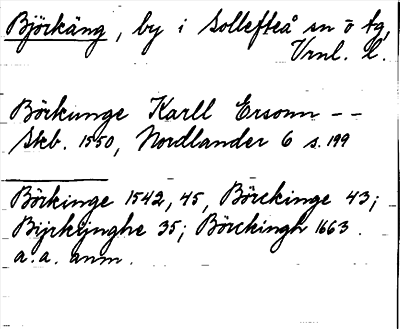 Björkäng, by i Sollefteå sn o tg,
Vrnl. l.
Börkunge Karll Ersonn --
Skb. 1550, Nordlander 6 s. 199
Börkinge 1542, 45, Börckinge 43;
Bijrkijnghe 35; Börckingh 1663.
a. a. anm.